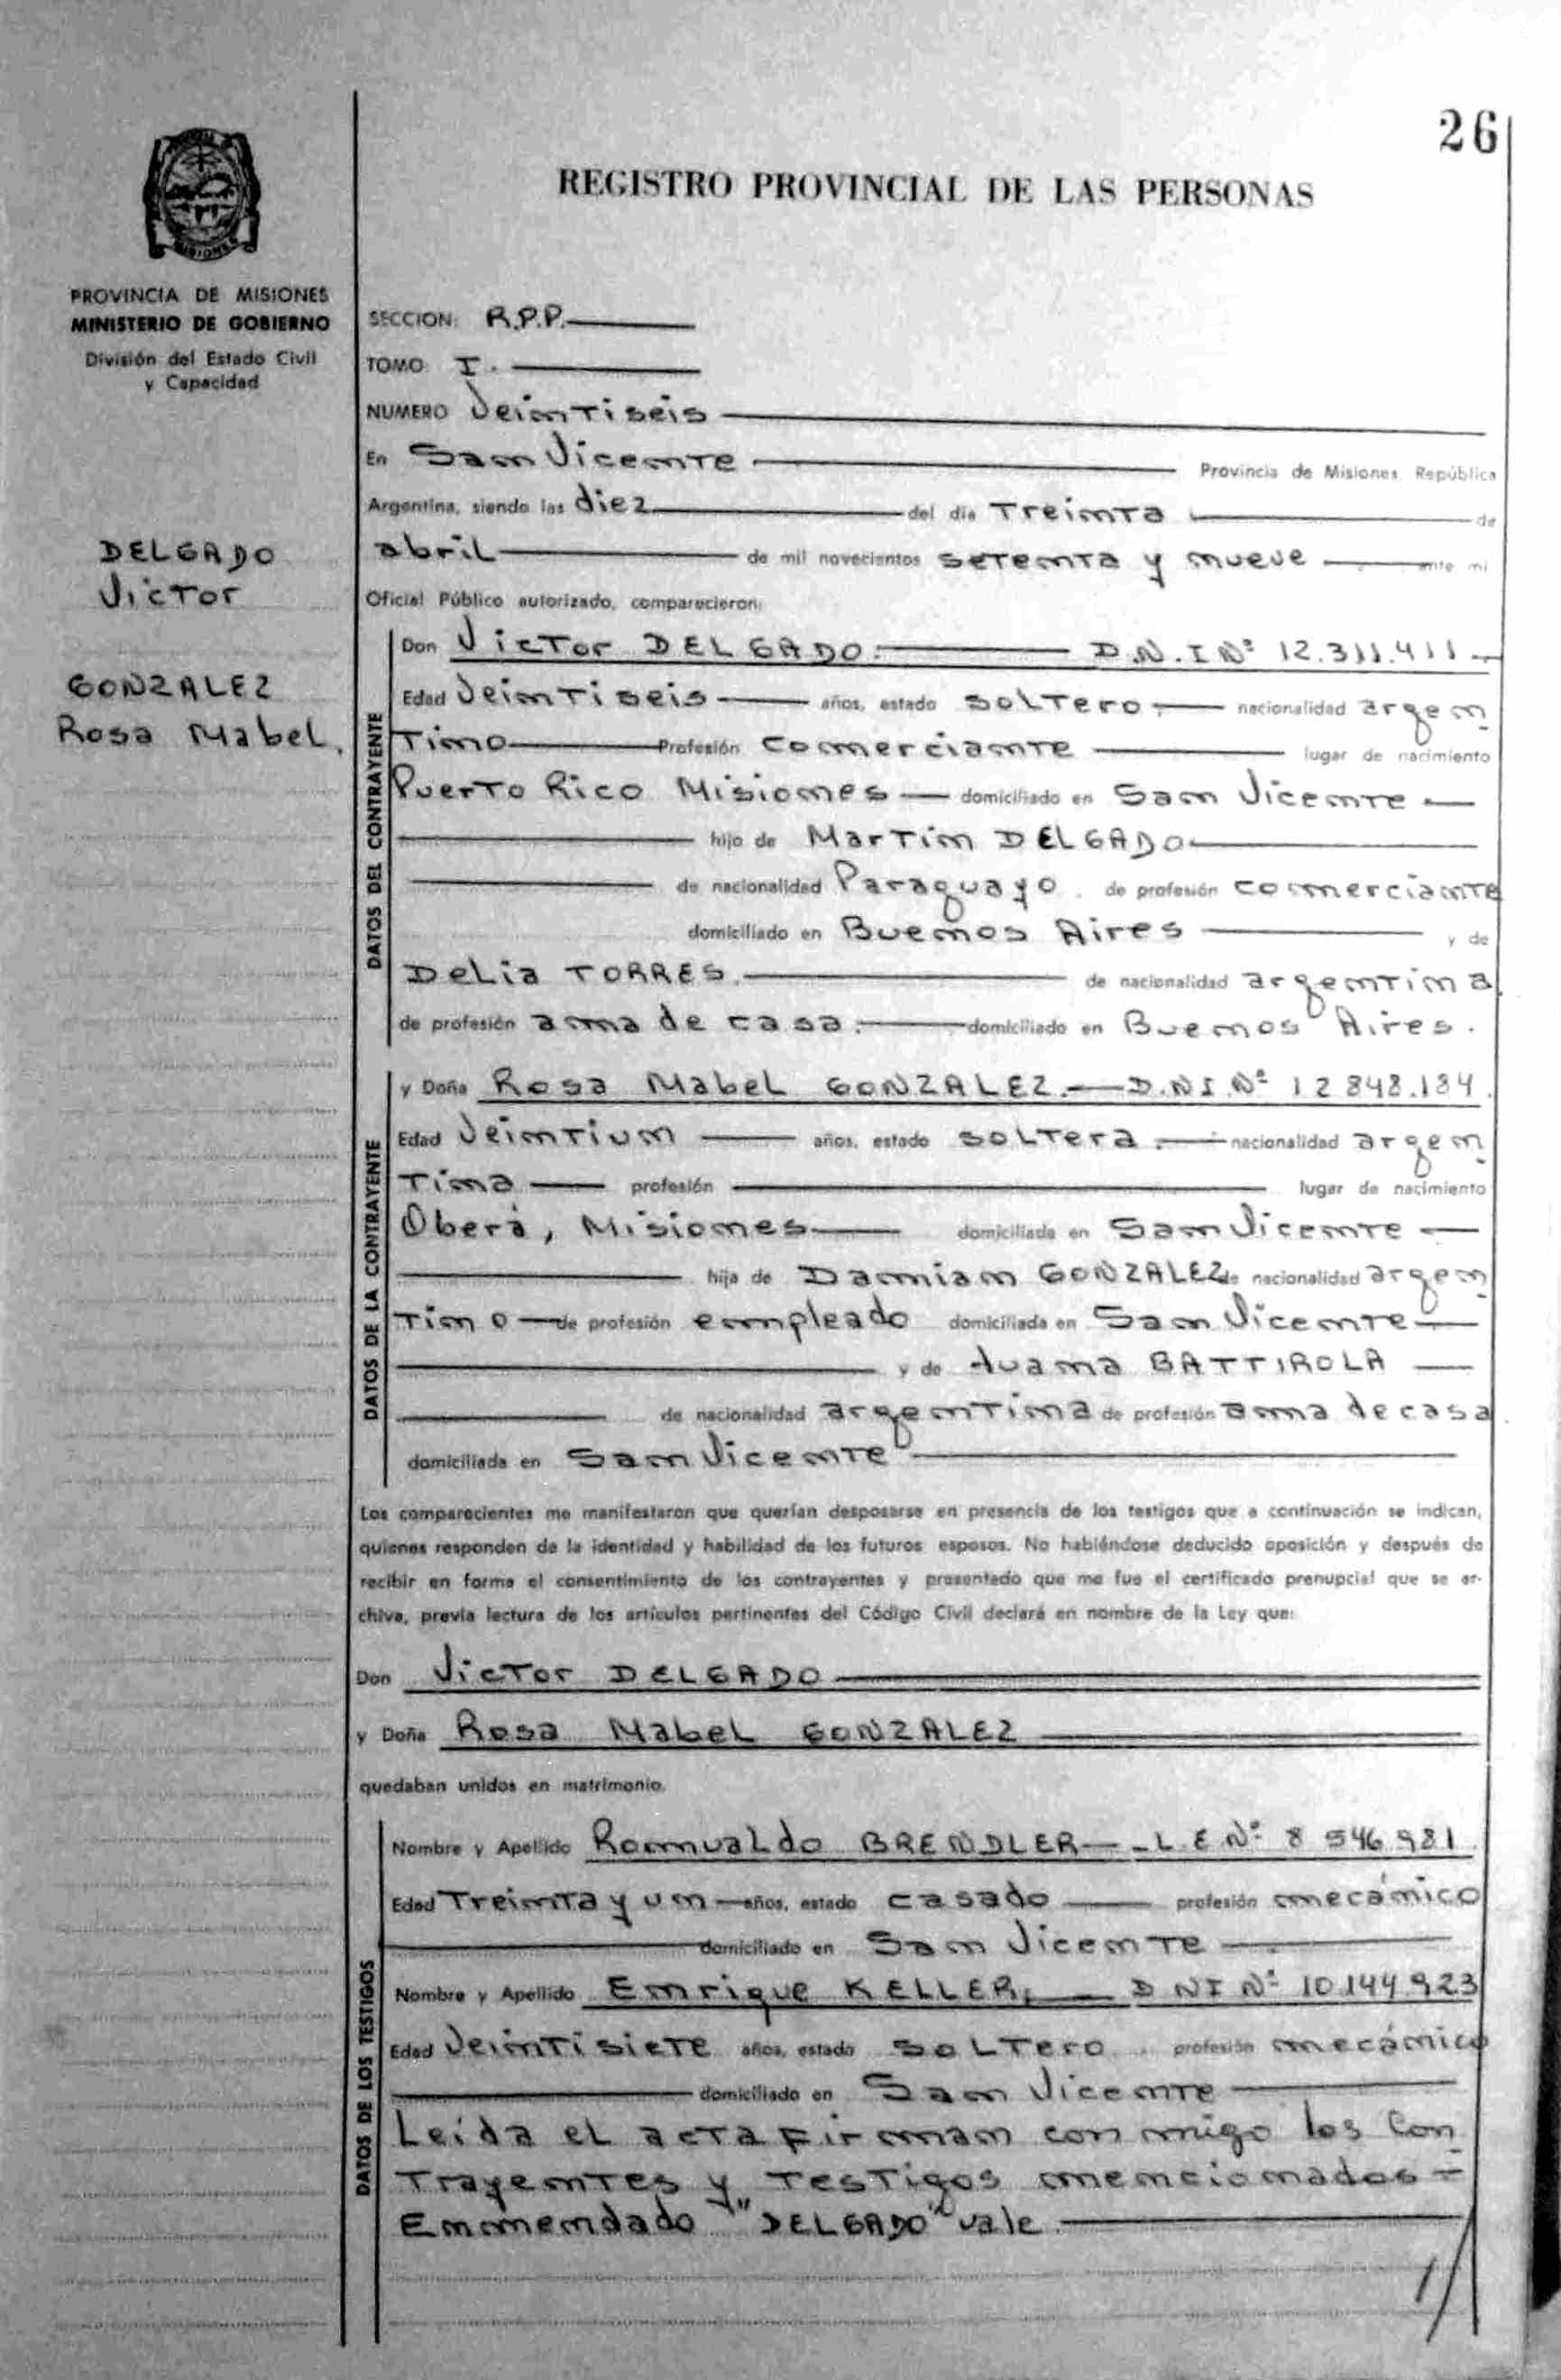 26
REGISTRO PROVINCIAL DE LAS PERSONAS
MISIONES
PROVINCIA DE MISIONES
MINISTERIO DE GOBIERNO
División del Estado Civil
y Capacidad
DELGADO
Victor
GONZALEZ
Rosa Mabel.
SECCION: R.P.P.
TOMO: I.
NUMERO Veintiseis
En San Vicente Provincia de Misiones, República
Argentina, siendo las diez del día Treinta de
abril de mil novecientos setenta y nueve ante mí
Oficial Público autorizado, comparecieron:
DATOS DEL CONTRAYENTE
Don Victor DELGADO. D.N.I Nº 12.311.411
Edad Veintiseis años, estado soltero. nacionalidad argen
tino Profesión comerciante lugar de nacimiento
Puerto Rico Misiones domiciliado en San Vicente
hijo de Martin DELGADO
de nacionalidad Paraguayo. de profesión comerciante
domiciliado en Buenos Aires y de
Delia TORRES. de nacionalidad argentina
de profesión ama de casa. domiciliado en Buenos Aires.
DATOS DE LA CONTRAYENTE
y Doña Rosa Mabel GONZALEZ. D.N.I. Nº 12 848.184.
Edad Veintiun años, estado soltera. nacionalidad argen
tina profesión lugar de nacimiento
Oberá, Misiones domiciliada en San Vicente
hija de Damian GONZALEZ de nacionalidad argen
tino de profesión empleado domiciliada en San Vicente
y de Juana BATTIROLA
de nacionalidad argentina de profesión ama de casa
domiciliada en San Vicente
Los comparecientes me manifestaron que querían desposarse en presencia de los testigos que a continuación se indican,
quienes responden de la identidad y habilidad de los futuros esposos. No habiéndose deducido oposición y después de
recibir en forma el consentimiento de los contrayentes y presentado que me fue el certificado prenupcial que se ar-
chiva, previa lectura de los artículos pertinentes del Código Civil declaré en nombre de la Ley que:
Don Victor DELGADO
y Doña Rosa Mabel GONZALEZ
quedaban unidos en matrimonio.
DATOS DE LOS TESTIGOS
Nombre y Apellido Romualdo BRENDLER L.E.Nº 8 546 981
Edad Treinta y un años, estado casado profesión mecánico
domiciliado en San Vicente
Nombre y Apellido Enrique KELLER, D NI Nº 10.144 923
Edad Veintisiete años, estado soltero profesión mecánico
domiciliado en San Vicente
Leída el acta firman conmigo los Con
trayentes y testigos mencionados =
Enmendado "DELGADO" vale